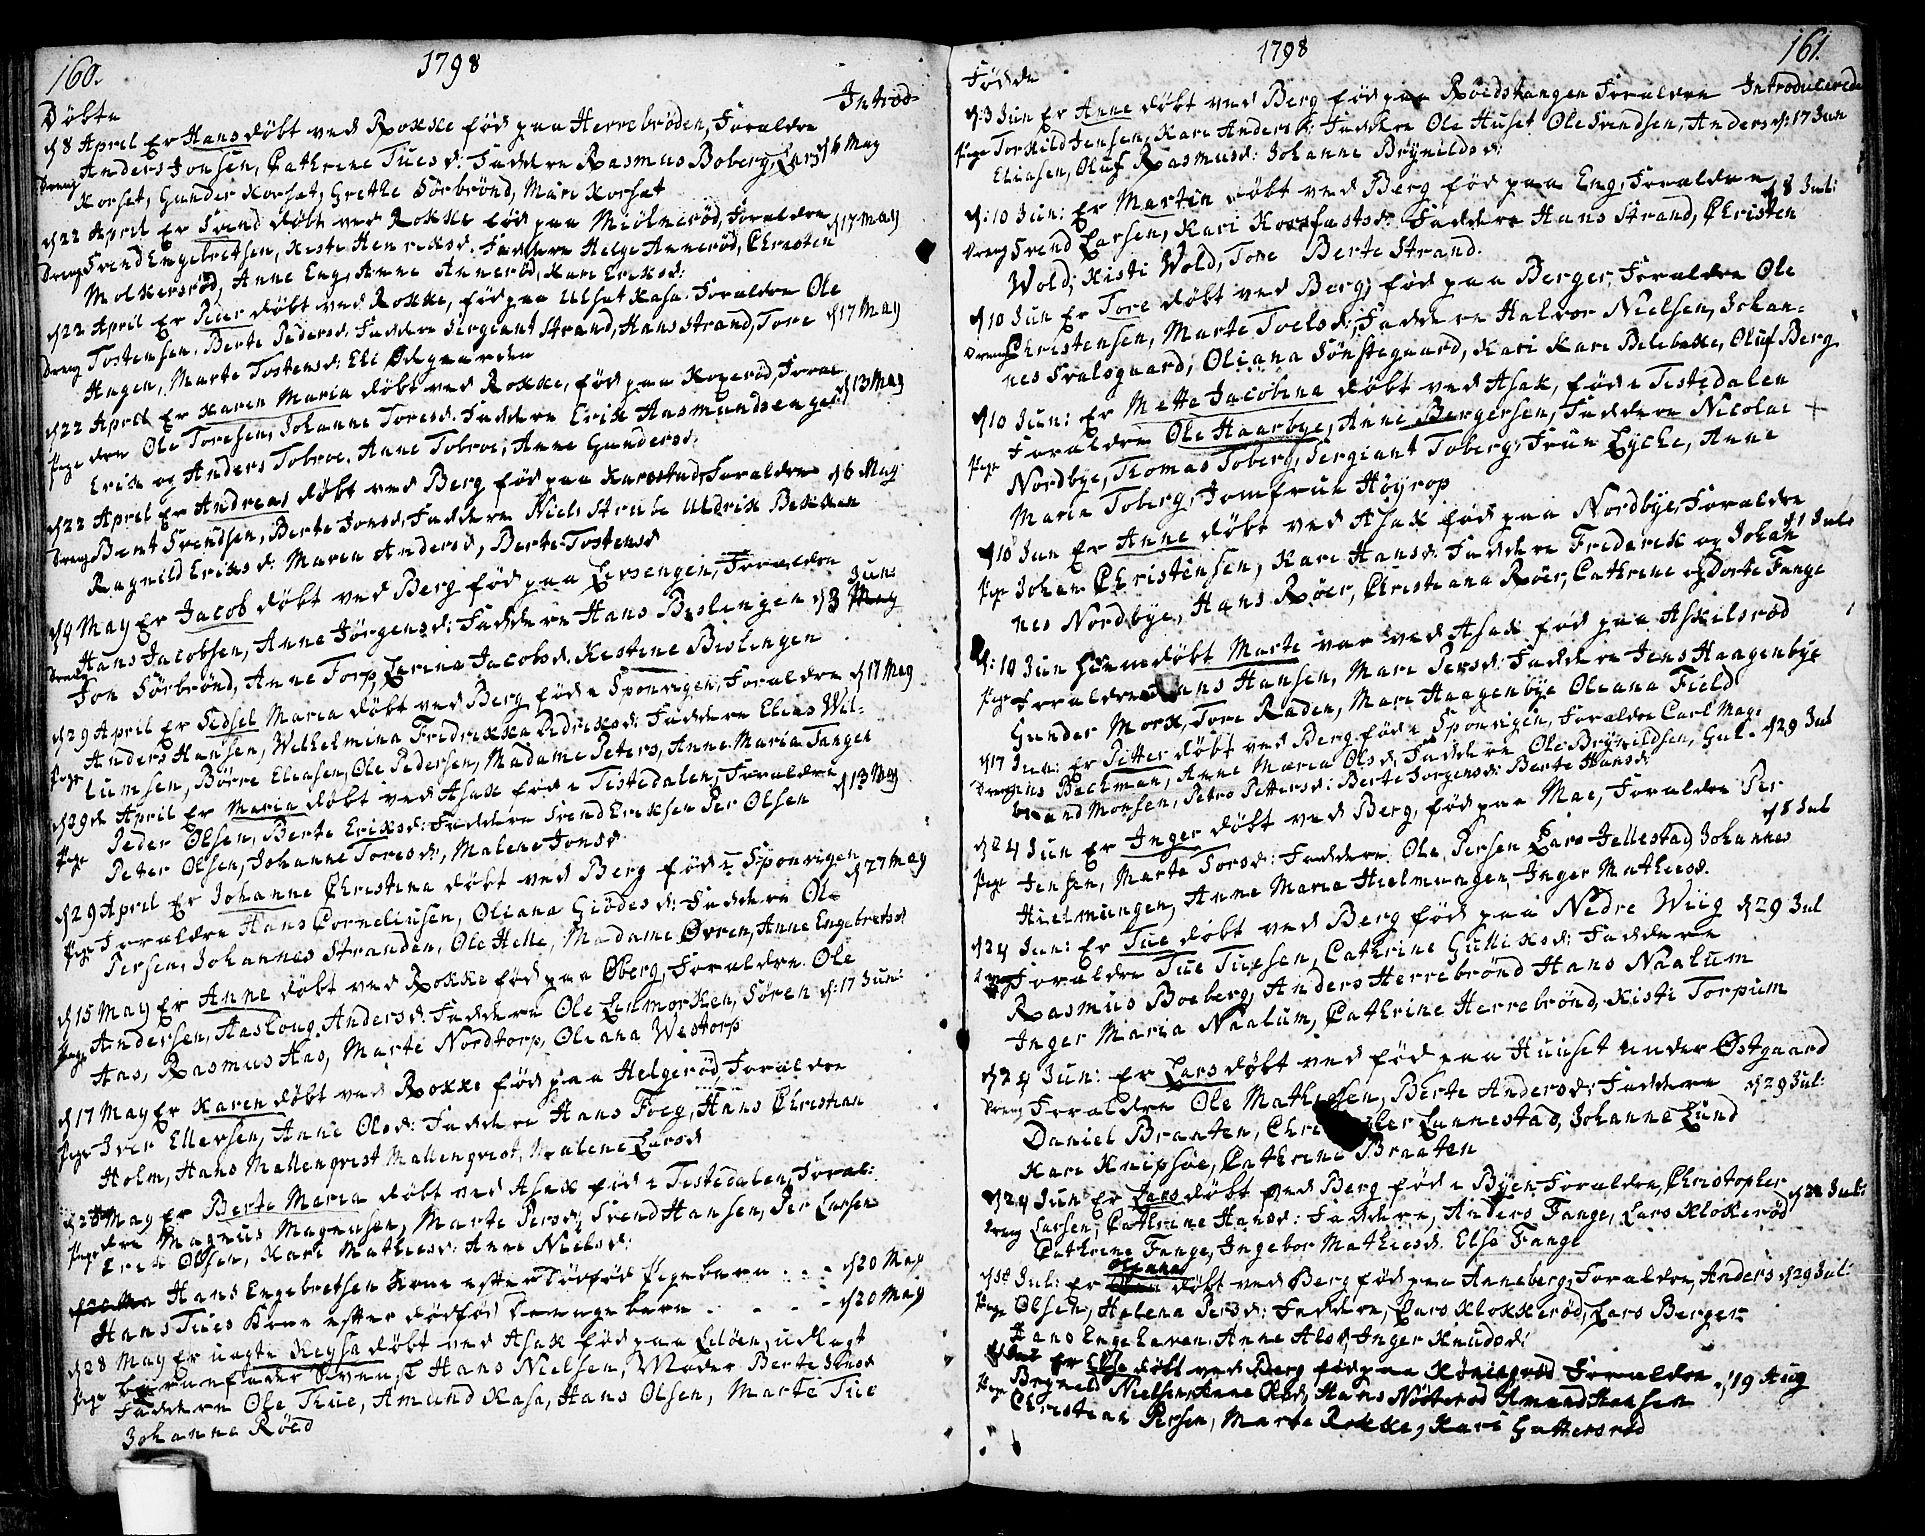 160.
1798
Døbte
Introd:
d 8 April Er Hans døbt ved Rokke fød paa Herrebrøden, Forældre
Anders Jonsen, Cathrine Tuesd: Faddere Rasmus Boberg, Lars d 6 May
Dreng Korset, Gunder Korset, Grethe Sørbrønd, Mari Korset
d 22 April Er Svend døbt ved Rokke fød paa Miølnerød, Forældre
Dreng Svend Engebretsen, Kisti Henriksd: Faddere Helge Annerød, Christen d 17 May
Molkersrød, Anne Eng, Anne Annerød, Kari Eriksd:
d 22 April Er Peer døbt ved Rokke, fød paa Ulset Kasa. Forældre Ole
Dreng Tostensen, Berte Pedersd: Faddere Sergiant Strand, Hans Strand, Tore d 17 May
Hagen, Marte Tostensd: Eli Ødegaarden
d 22 April Er Karen Maria døbt ved Rokke, fød paa Koperød, Foræl
Pige dre Ole Toresen, Johanne Toresd: Faddere Erik Aasmundsen d 13 May
Erik og Anders Tobroe, Anne Tobroe, Anne Gundersd:
d 22 April Er Andreas døbt ved Berg fød paa Karrestad, Forældre d 6 May
Dreng Bent Svendsen, Berte Jonsd, Faddere Niels Strube Uldrik Bekken
Ragnild Eriksd: Maren Andersd, Berte Tostensd
d 4 May Er Jacob døbt ved Berg fød paa Livsengen, Forældre Jun:
Dreng Hans Jacobsen, Anne Jørgensd: Faddere Hans Bislingen d 3 May
Jon Sørbrønd, Anne Torp, Lerina Jacobsd. Kistine Bislingen
d 29 April Er Sidsel Maria døbt ved Berg fød i Sponvigen, Forældre d 17 May
Pige Anders Hansen, Wilhelmina Fredrikka Didriksd: Faddere Elias Wil-
lumsen, Børre Eliasen, Ole Pedersen, Madame Peters, Anne Maria Tangen
d 29d April Er Maria døbt ved Asak fød i Tistedalen, Forældre d 13 May
Pige Peder Olsen, Berte Eriksd: Faddere Svend Eriksen Per Olsen
Peter Olsen, Johanne Toresd:, Malene Jonsd.
d 29 April Er Johanne Christina døbt ved Berg fød i Sponvigen d 27 May
Pige Forældre Hans Corneliusen, Oliana Giødesd: Faddere Ole
Persen, Johannes Stranden, Ole Helle, Madame Øvren, Anne Engebretsd
d 15 May Er Anne døbt ved Rokke fød paa Øberg, Forældre Ole
Pige Andersen, Aasloug Andersd: Faddere Ole Lilmorken, Søren d: 17 Jun:
Aas, Rasmus Aas, Marte Nordtorp, Oliana Westorp
d 17 May Er Karen døbt ved Rokke fød paa Helgerød, Forældre
Pige Iver Ellevsen, Anne Olsd: Faddere Hans Foeg, Hans Christian
Holm, Hans Mallenqvist Mallenqvist, Malene Larsd
d 28 May Er Berte Maria døbt ved Asak fød i Tistedalen, Foræl:
Pige dre Magnus Magnusen, Marte Persd, Svend Hansen, Per Larsen
Erik Olsen, Kari Mathiesd: Anne Nielsd:
Hans Engebretsen Kone efter dødfød Pigebarn . . . d 20 May
Hans Tues Kone efter dødfød Drengebarn . . . . d 20 May
d 28 May Er uægte Keysa døbt ved Asak fød paa Liløen, udlagt
Pige Barnefader Svensk Hans Nielsen, Moder Berte Jensd
Faddere Ole Tlue, Amund Kasa, Hans Olsen, Marte Tue
Johanne Røed
1798
161.
Fødde
d: 3 Jun Er Anne døbt ved Berg fød paa Røedstangen Forældre Introducerede
Pige Torkild Jensen, Kari Andersd: Faddere Ole Huset Ole Svendsen, Anders d: 17 Jun
Eliasen, Oluf Rasmusd: Johanne Brynildsd:
d: 10 Jun: Er Martin døbt ved Berg fød paa Eng, Forældre d 8 Jul:
Dreng Svend Larsen, Kari Korsfastsd: Faddere Hans Strand, Christen
Wold, Kisti Wold, Tone Berte Strand.
d 10 Jun Er Tore døbt ved Berg, fød paa Berger, Forældre Ole
Dreng Christensen, Marte Toelsd: Faddere Halvor Nielsen, Johan-
nes Svalsgaard, Oliana Sønstegaard, Kari Kari Belebake, Oluf Berg
d 10 Jun: Er Mette Jacobina døbt ved Asak, fød i Tistedalen
Pige Forældre Ole Haarbye, Anne Bergersen, Faddere Nicolai +
Nordbye, Thomas Toberg, Sergiant Toberg, Frue Lyche, Anne
Maria Toberg, Jomfrue Høyrop
d 10 Jun Er Anne døbt ved Asak fød paa Nordbye, Forældre
Pige Johan Christensen, Kari Hansd: Faddere Frederik og Johan d 1 Jul:
nes Nordbye, Hans Røer, Christiana Røer, Cathrine og Dorte Fange
d: 10 Jun Hiemdøbt Marte var ved Asak fød paa Askilsrød
Pige Forældre Hans Hansen, Mari Persd: Faddere Jens Haagenbye
Gunder Mork, Tore Raden, Mari Haagenbye Oliana Field
d 17 Jun: Er Petter døbt ved Berg fød i Sponvigen, Forældre Carl Mag-
Dreng nus Backman, Anne Maria Olsd, Faddere Ole Brynildsen, Gul- d 29 Jul
brand Monsen, Petro Pettersd: Berte Jorgensd: Berte Hansd:
d 24 Jun Er Inger døbt ved Berg, fød paa Mae, Forældre Per d 8 Jul
Pige Jensen, Marte Torsd: Faddere Ole Persen Lars Jellestad, Johannes
Hielmungen, Anne Maria Hielmungen, Inger Mathiesd.
d 24 Jun: Er Tue døbt ved Berg fød paa Nedre Wiig d 29 Jul
Dreng Forældre Tue Tuesen, Cathrine Gulliksd: Faddere
Rasmus Boeberg, Anders Herrebrønd Hans Naalum
Inger Maria Naalum, Cathrine Herrebrønd, Kisti Torpum
d 24 Jun: Er Lars døbt ved fød paa Huuset under Østgaard
Dreng Forældre Ole Mathisen, Berte Andersd: Faddere d 29 Jul:
Daniel Braaten, Christopher Lannestad, Johanne Lund
Kari Knipsøe, Cathrine Braaten
d 24 Jun Er Lars døbt ved Berg fød i Byen Forældre, Christopher
Dreng Larsen, Cathrine Hansd: Faddere, Anders Fange, Lars Klokerød d 22 Jul:
Cathrine Fange, Ingebor Mathiesd. Else Fange
Oleana
d 1 Jul: Er døbt ved Berg fød paa Anneberg, Forældre, Anders d 29 Jul:
Pige Olsen, Helena Persd: Faddere, Lars Klokkerød, Lars Berger
Hans Engelaven. Anne Alsd, Inger Knudsd:
d Jul Er Else døbt ved Berg fød paa Køningrød Forældre
Pige Brynild Nielsen, Anne Olsd, Hans Nøsterød Amund Hansen d 19 Aug
Christian Persen, Marte Rokke, Kari Guttersrød